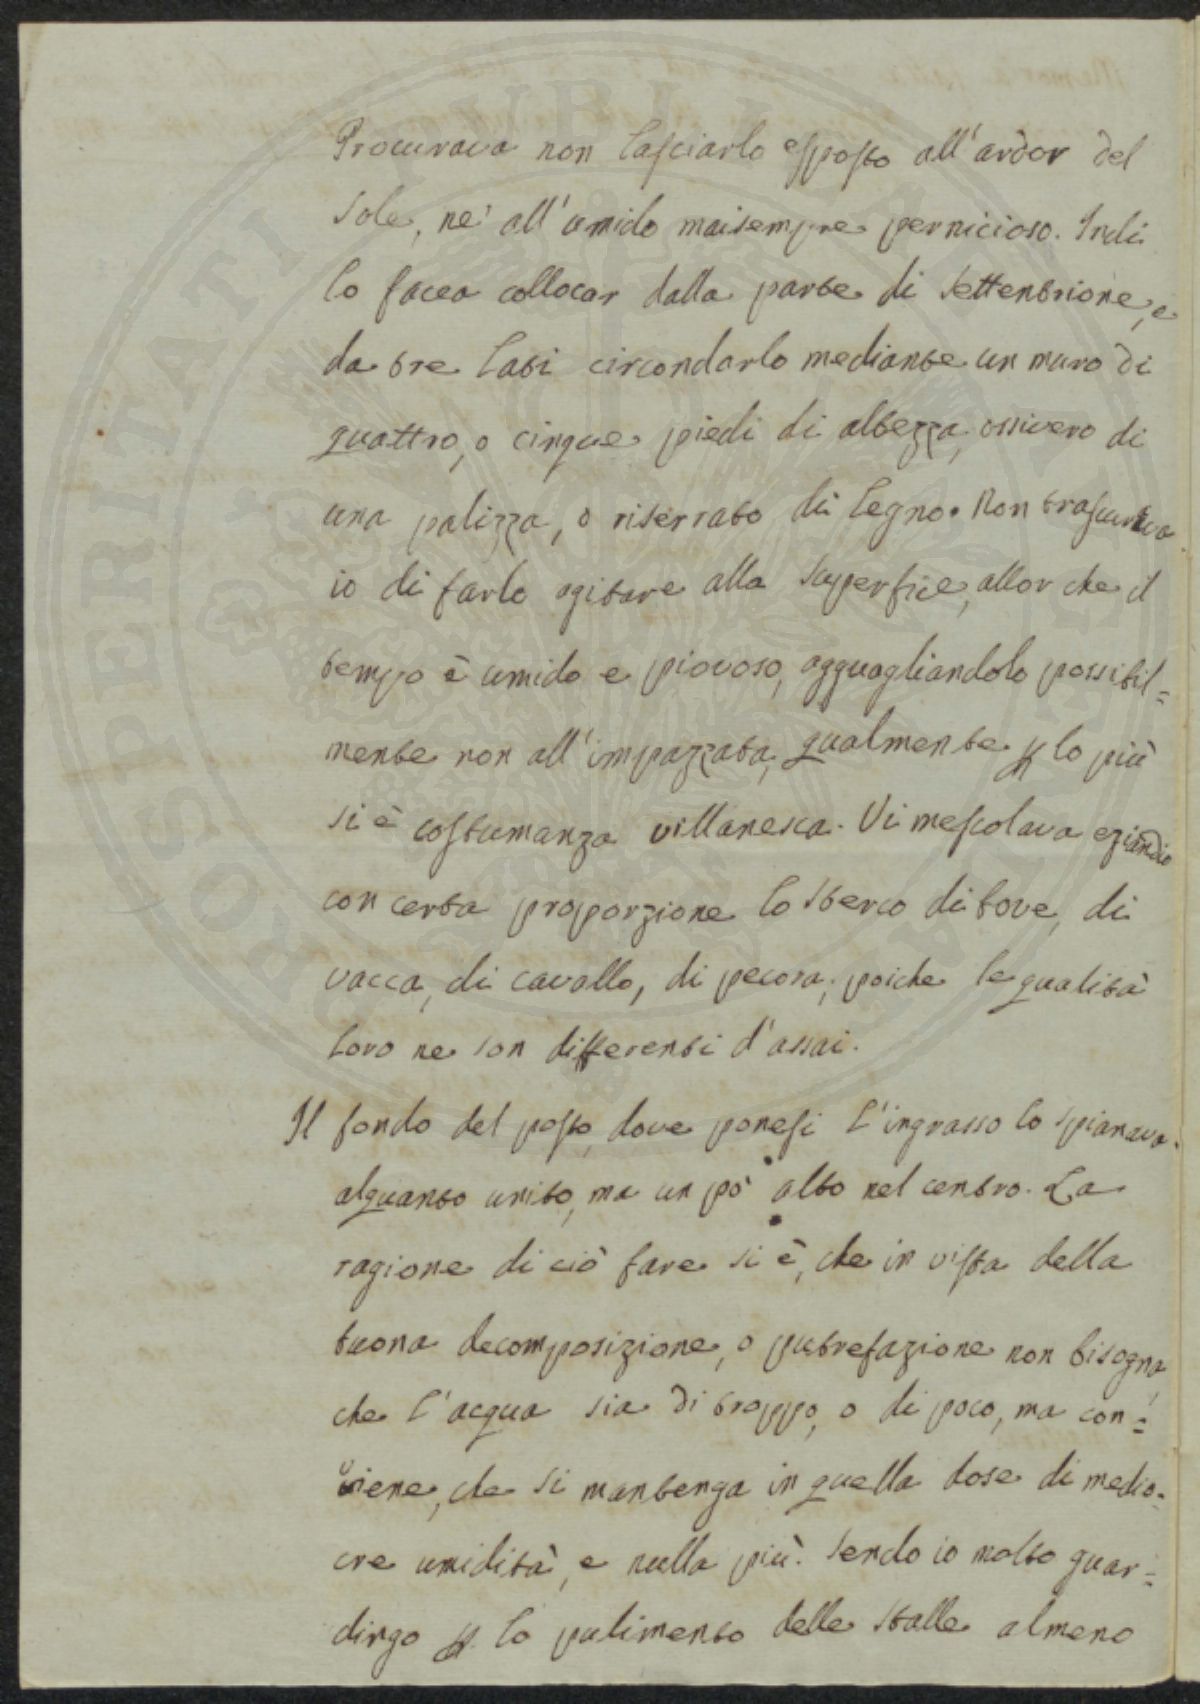 Procurava non lasciarlo esposto all'ardor del
sole, ne' all'umido maisempre pernicioso. Indi
lo facea collocar dalla parte di settentrione, e
da tre lati circondarlo mediante un muro di
quattro, o cinque piedi di altezza, ossivero di
una palizza, o riserrato di legno. Non trascurava
io di farlo agitare alla superfice, allor che il
tempo è umido e piovoso, agguagliandolo possibil=
mente non all'impazzata, qualmente p lo più
si è costumanza villanesca. Vi mescolava eziandio
con certa proporzione lo sterco di bove, di
vacca, di cavallo, di pecora; poiche le qualità
loro ne son differenti d'assai.
Il fondo del posto, dove ponesi l'ingrasso lo spianava
alquanto unito, ma un pò alto nel centro. La
ragione di ciò fare si è, che in vista della
buona decomposizione, o putrefazione non bisogna,
che l'acqua sia di troppo, o di poco, ma con=
viene, che si mantenga in quella dose di medio=
cre umidità, e nulla più. Sendo io molto guar=
dingo p lo pulimento delle stalle almeno
PROSPERITATI PUBLICAE AUGENDAE